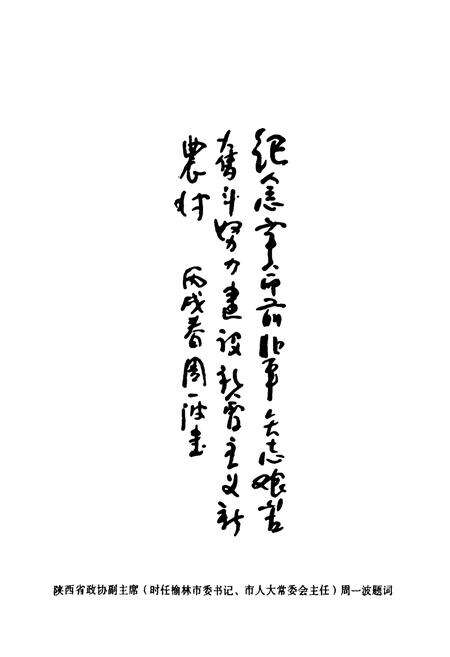 纪念矢志艰苦
奋斗努力建设社会主义新
農村 丙戌春周一波书
陕西省政协副主席（时任榆林市委书记、市人大常委会主任）周一波题词